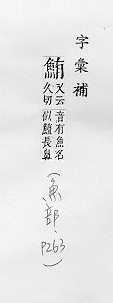 字彙補
鮪 又云久切音有魚名似鱣長鼻
(魚部,P263)